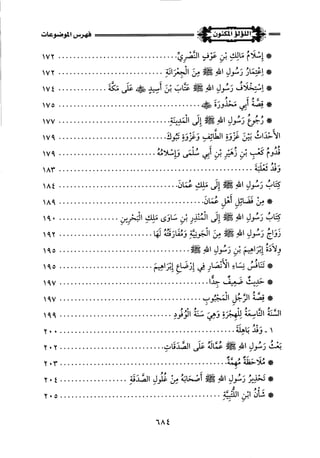 فهرس الموضوعات
اللؤلؤ المكنون
* إِسْلَامُ مَالِكِ بْنِ عَوْفٍ النَّصْرِيِّ ... ١٧٢
* اِعْتِمَارُ رَسُولِ اللهِ ﷺ مِنَ الْجِعْرَانَةِ ... ١٧٢
* اِسْتِخْلَافُ رَسُولِ اللهِ ﷺ عَتَّابَ بْنَ أَسِيدٍ ﵁ عَلَى مَكَّةَ ... ١٧٤
* قِصَّةُ أَبِي مَحْذُورَةَ ﵁ ... ١٧٥
* رُجُوعُ رَسُولِ اللهِ ﷺ إِلَى الْمَدِينَةِ ... ١٧٧
الْأَحْدَاثُ بَيْنَ غَزْوَةِ الطَّائِفِ وَغَزْوَةِ تَبُوكَ ... ١٧٩
قُدُومُ كَعْبِ بْنِ زُهَيْرِ بْنِ أَبِي سُلْمَى وَإِسْلَامُهُ ... ١٧٩
وَفْدُ ثَعْلَبَةَ ... ١٨٣
كِتَابُ رَسُولِ اللهِ ﷺ إِلَى مَلِكِ عُمَانَ ... ١٨٤
* مِنْ فَضَائِلِ أَهْلِ عُمَانَ ... ١٨٩
كِتَابُ رَسُولِ اللهِ ﷺ إِلَى الْمُنْذِرِ بْنِ سَاوَى مَلِكِ الْبَحْرَيْنِ ... ١٩٠
زَوَاجُ رَسُولِ اللهِ ﷺ مِنَ الْجَوْنِيَّةِ وَمُفَارَقَتُهُ لَهَا ... ١٩٢
وِلَادَةُ إِبْرَاهِيمَ بْنِ رَسُولِ اللهِ ﷺ ... ١٩٥
* تَنَافُسُ نِسَاءِ الْأَنْصَارِ فِي إِرْضَاعِ إِبْرَاهِيمَ ... ١٩٥
* حَدِيثٌ ضَعِيفٌ جِدًّا ... ١٩٧
* قِصَّةُ الرَّجُلِ الْمَجْبُوبِ ... ١٩٧
السَّنَةُ التَّاسِعَةُ لِلْهِجْرَةِ وَهِيَ سَنَةُ الْوُفُودِ ... ١٩٩
١ - وَفْدُ بَاهِلَةَ ... ٢٠٠
بَعْثُ رَسُولِ اللهِ ﷺ عُمَّالَهُ عَلَى الصَّدَقَاتِ ... ٢٠٢
* مُلَاحَظَةٌ مُهِمَّةٌ ... ٢٠٣
* تَحْذِيرُ رَسُولِ اللهِ ﷺ أَصْحَابَهُ مِنْ غُلُولِ الصَّدَقَةِ ... ٢٠٤
* شَأْنُ ابْنِ اللُّتْبِيَّةِ ... ٢٠٥
٦٨٤